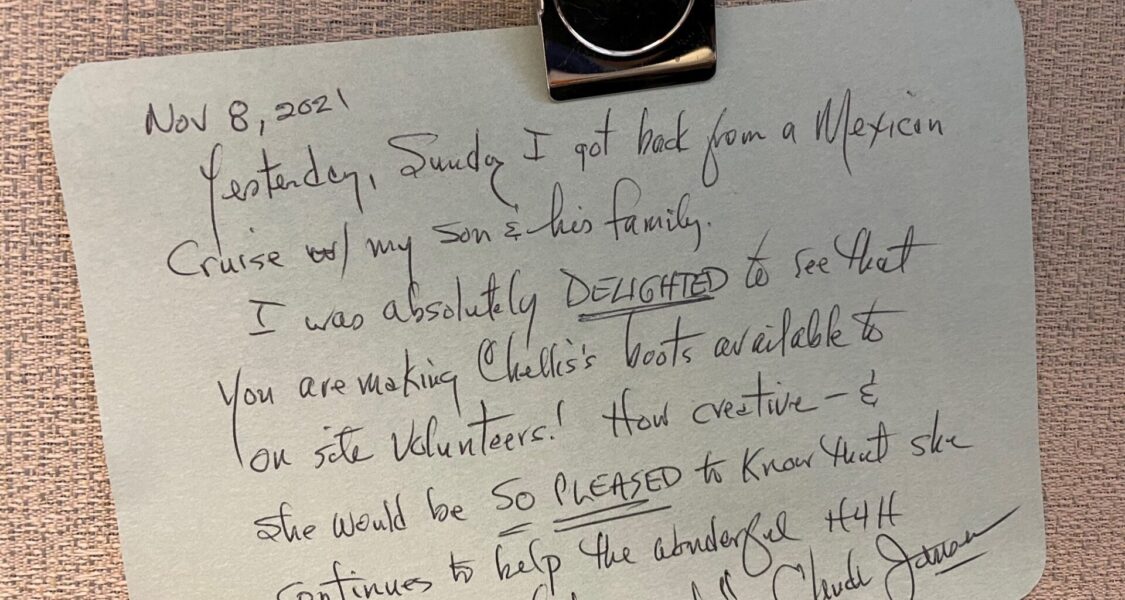 Nov 8, 2021
Yesterday, Sunday I got back from a Mexican
Cruise w/ my son & his family.
I was absolutely DELIGHTED to see that
you are making Chellis's boots available to
on site volunteers! How creative - &
she would be SO PLEASED to know that she
continues to help the wonderful H4H
Claude